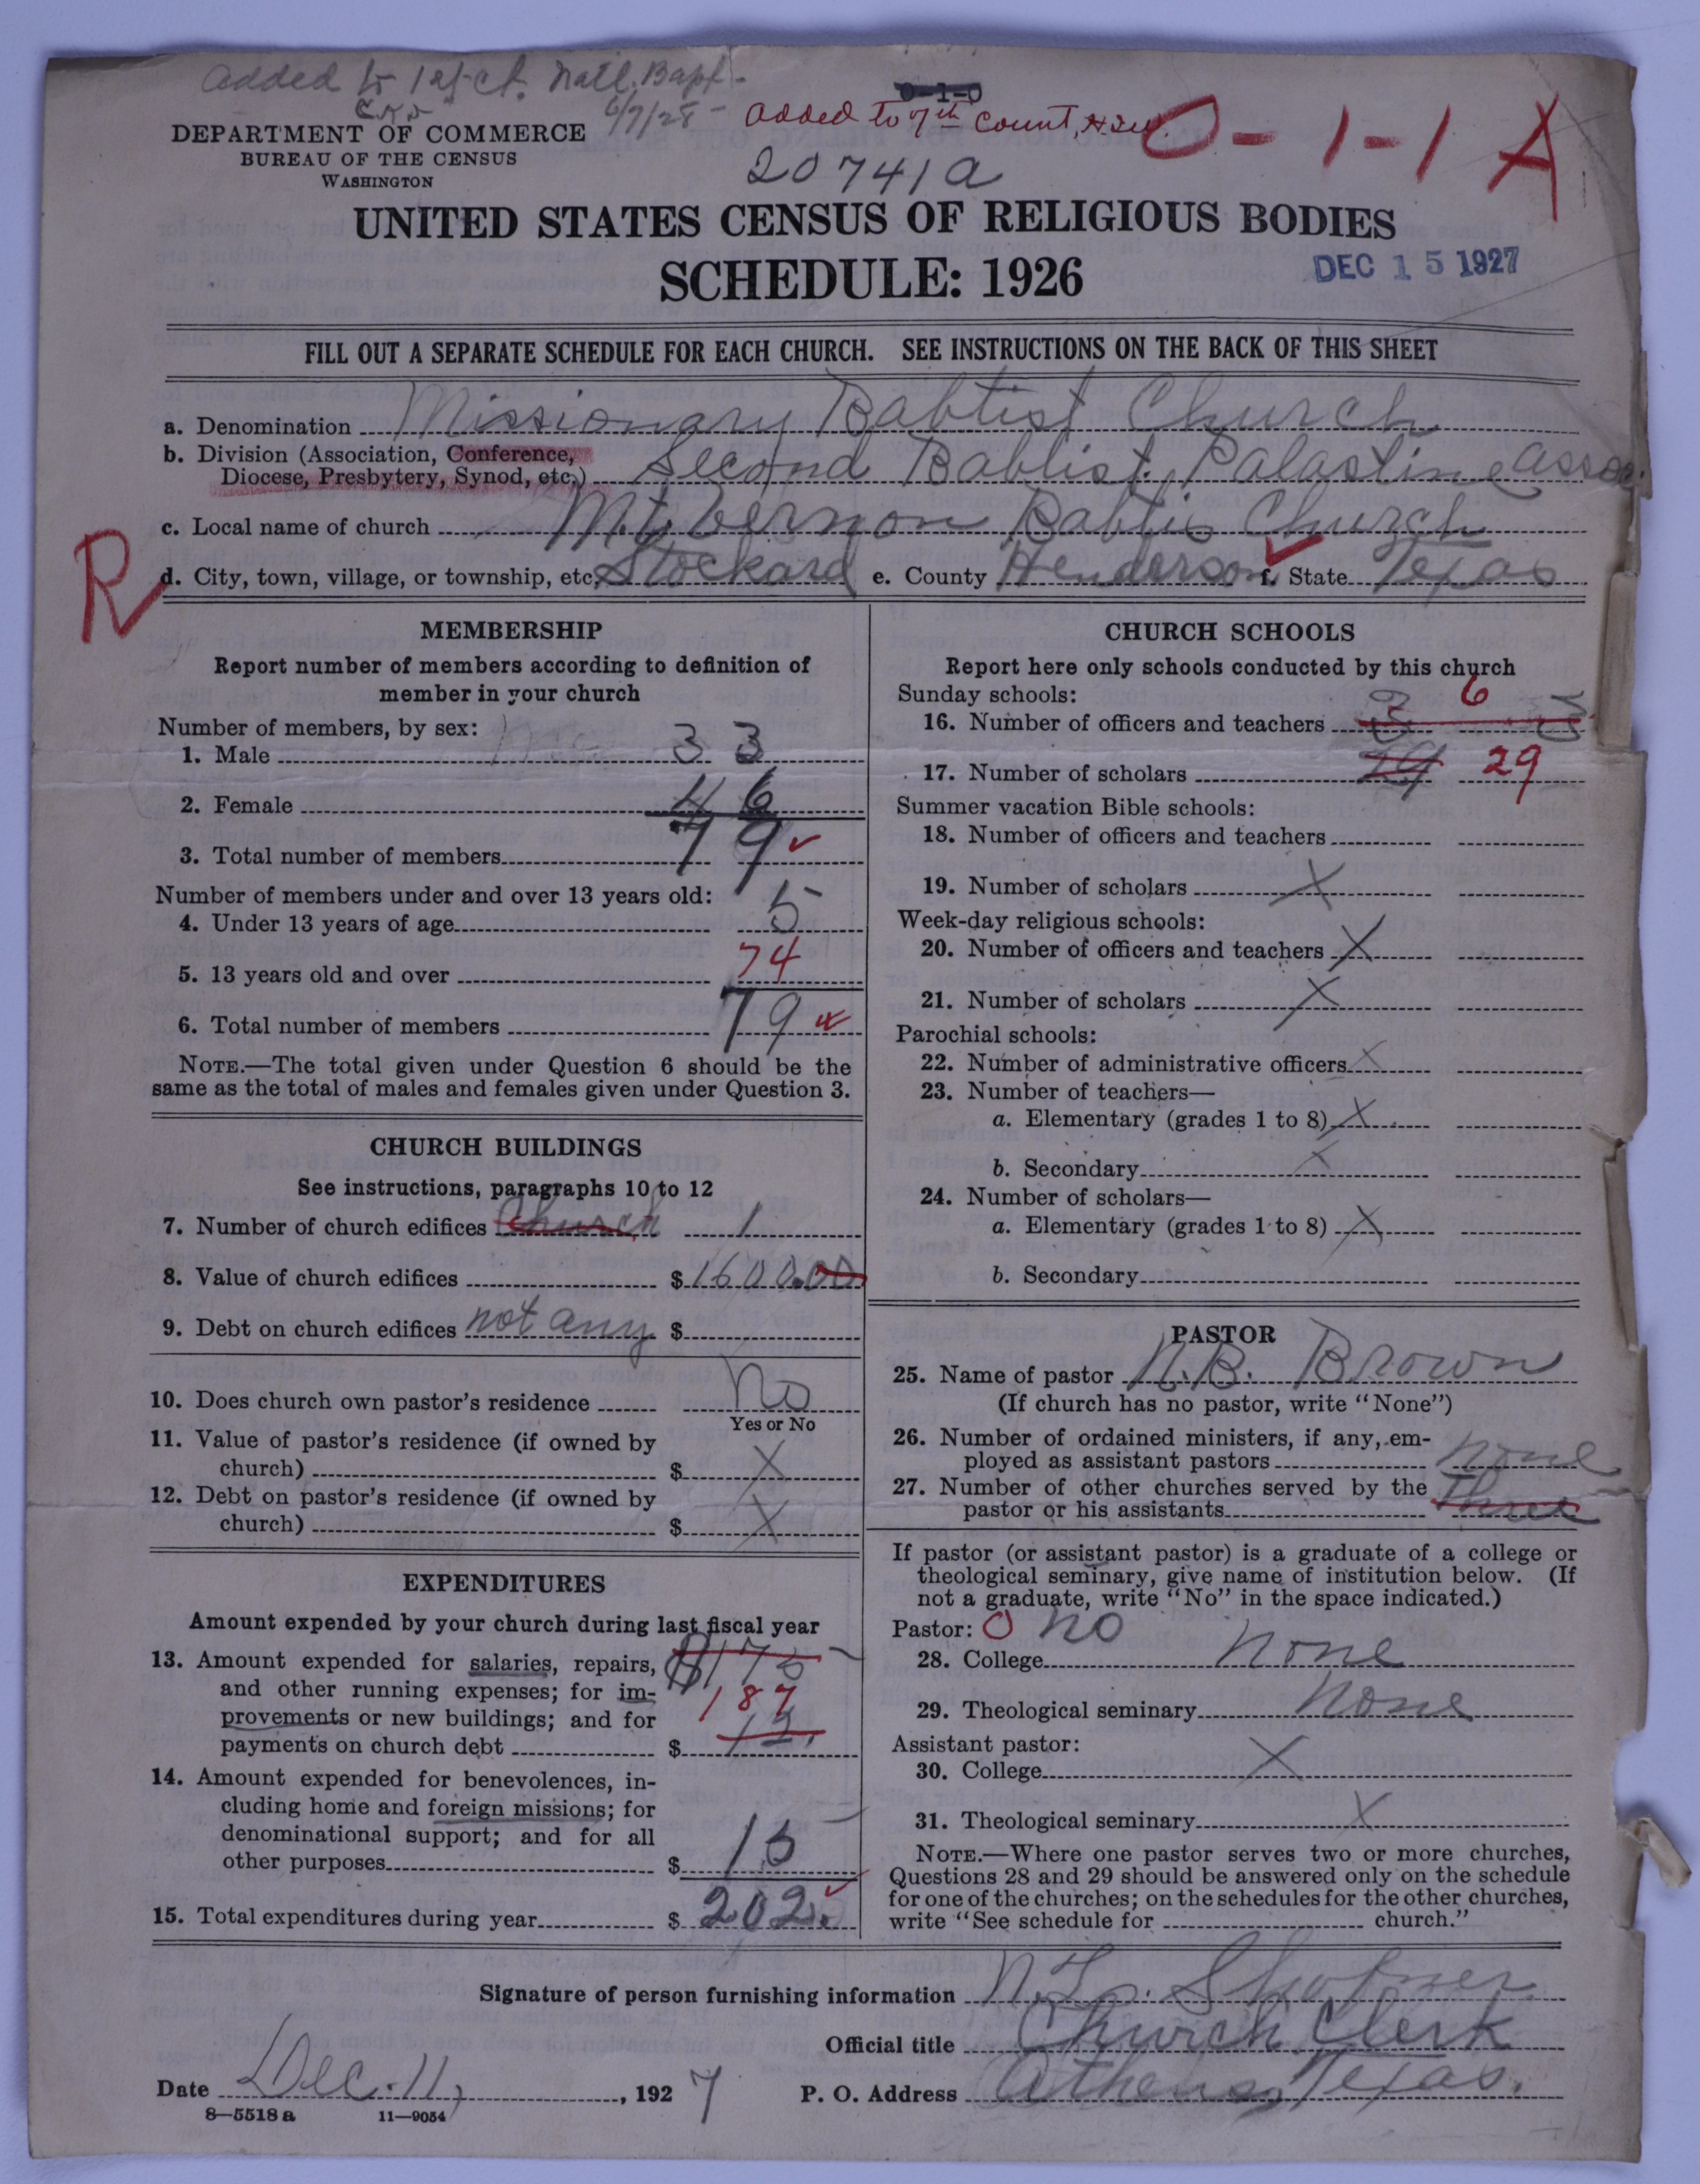 added to 1st ct. Natl. Bapt-
6/7/28-
0-1-0
added to 7th count,
0-1-1 A
DEPARTMENT OF COMMERCE
BUREAU OF THE CENSUS
WASHINGTON
20741a
UNITED STATES CENSUS OF RELIGIOUS BODIES
SCHEDULE: 1926
DEC 15 1927
FILL OUT A SEPARATE SCHEDULE FOR EACH CHURCH. SEE INSTRUCTIONS ON THE BACK OF THIS SHEET
a. Denomination Missionary Babtist Church
b. Division (Association, Conference,
Diocese, Presbytery, Synod, etc.) Second Bablist. Palastine assoc.
c. Local name of church Mt. Vernon Babtis Church
R
d. City, town, village, or township, etc. Stockard e. County Henderson f. State Texas
MEMBERSHIP
Report number of members according to definition of
member in your church
Number of members, by sex:
1. Male 33
2. Female 46
3. Total number of members 79
Number of members under and over 13 years old:
4. Under 13 years of age 5
5. 13 years old and over 74
6. Total number of members 79
NOTE.—The total given under Question 6 should be the
same as the total of males and females given under Question 3.
CHURCH BUILDINGS
See instructions, paragraphs 10 to 12
7. Number of church edifices Church 1
8. Value of church edifices $1600.00
9. Debt on church edifices not any $
10. Does church own pastor's residence No
Yes or No
11. Value of pastor's residence (if owned by
church) $ X
12. Debt on pastor's residence (if owned by
church) $ X
EXPENDITURES
Amount expended by your church during last fiscal year
13. Amount expended for salaries, repairs, $175
and other running expenses; for im- 187
provements or new buildings; and for 12.
payments on church debt $
14. Amount expended for benevolences, in-
cluding home and foreign missions; for
denominational support; and for all
other purposes $ 15
15. Total expenditures during year $ 202.
CHURCH SCHOOLS
Report here only schools conducted by this church
Sunday schools: 6
16. Number of officers and teachers 3 3
17. Number of scholars 29 29
Summer vacation Bible schools:
18. Number of officers and teachers
19. Number of scholars X
Week-day religious schools:
20. Number of officers and teachers X
21. Number of scholars X
Parochial schools:
22. Number of administrative officers X
23. Number of teachers—
a. Elementary (grades 1 to 8) X
b. Secondary X
24. Number of scholars—
a. Elementary (grades 1 to 8) X
b. Secondary
PASTOR
25. Name of pastor N.B. Brown
(If church has no pastor, write "None")
26. Number of ordained ministers, if any, em-
ployed as assistant pastors none
27. Number of other churches served by the
pastor or his assistants Three
If pastor (or assistant pastor) is a graduate of a college or
theological seminary, give name of institution below. (If
not a graduate, write "No" in the space indicated.)
Pastor: 0 no
28. College none
29. Theological seminary none
Assistant pastor:
30. College X
31. Theological seminary X
NOTE.—Where one pastor serves two or more churches,
Questions 28 and 29 should be answered only on the schedule
for one of the churches; on the schedules for the other churches,
write "See schedule for church."
Signature of person furnishing information
Official title Church Clerk
Date Dec. 11, , 1927 P. O. Address Athens, Texas.
8—5518 a 11—9054